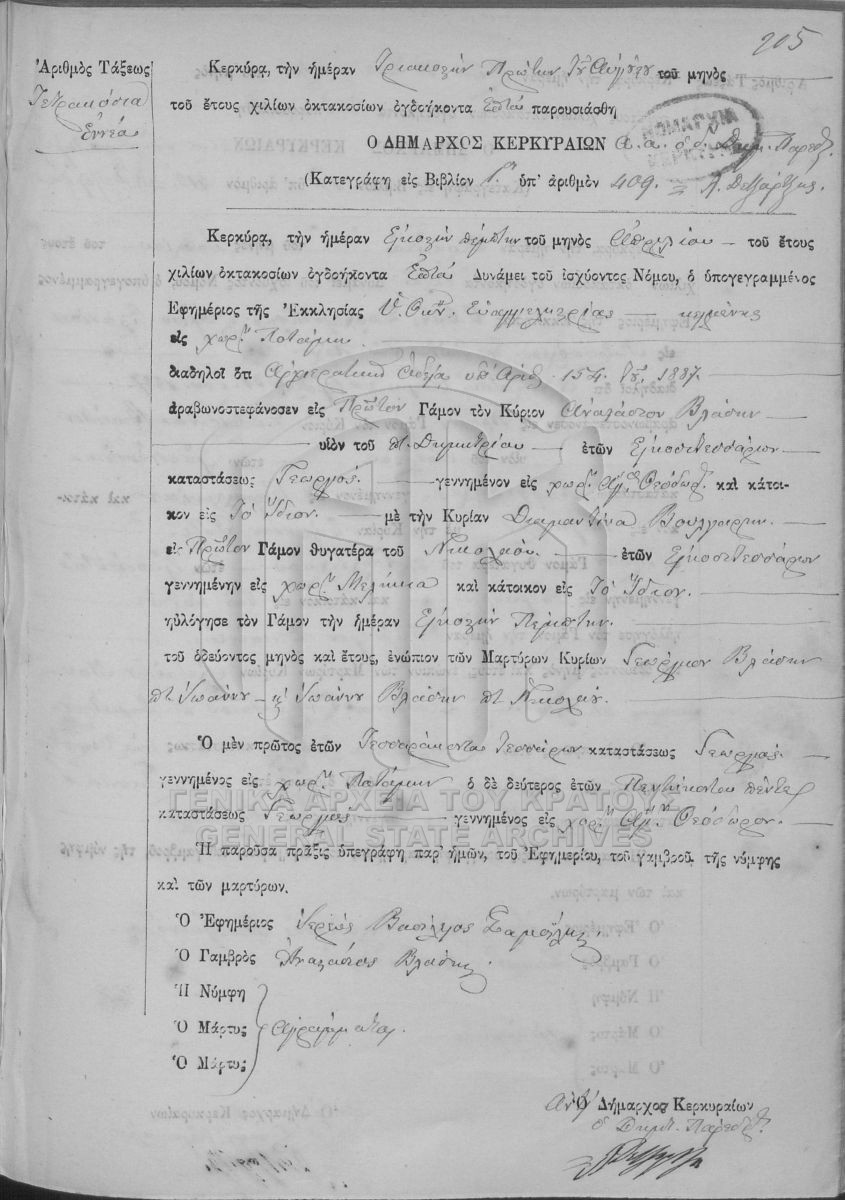 205
Ἀριθμὸς Τάξεως
Τετρακόσια
Ἐννέα
Κερκύρᾳ, τὴν ἡμέραν Τριακοστὴν Πρώτην Αὐγούστου τοῦ μηνὸς
τοῦ ἔτους χιλίων ὀκτακοσίων ὀγδοήκοντα Ἑπτὰ παρουσιάσθη
Ο ΔΗΜΑΡΧΟΣ ΚΕΡΚΥΡΑΙΩΝ
ΝΟΜΑΡΧΙΑ
(Κατεγράφη εἰς Βιβλίον ὑπ' ἀριθμὸν 409.
Κερκύρᾳ, τὴν ἡμέραν Εἰκοστὴν πέμπτην τοῦ μηνὸς Ἀπριλίου τοῦ ἔτους
χιλίων ὀκτακοσίων ὀγδοήκοντα Ἑπτὰ Δυνάμει τοῦ ἰσχύοντος Νόμου, ὁ ὑπογεγραμμένος
Ἐφημέριος τῆς Ἐκκλησίας Εὐαγγελιστρίας κειμένης
εἰς χωρ. Ποταμὸν
διαδηλοῖ ὅτι Ἀρχιερατικῇ Ἀδείᾳ ὑπ' Ἀριθ. 154. 1887
ἀραβωνοστεφάνοσεν εἰς Πρῶτον Γάμον τὸν Κύριον Ἀναστάσιον Βλάσην
υἱὸν τοῦ ποτ. Δημητρίου ἐτῶν Εἰκοσιτεσσάρων
καταστάσεως Γεωργός. γεννημένον εἰς χωρ. Θεόδωρ. καὶ κάτοι-
κον εἰς Τὸ Ἴδιον. μὲ τὴν Κυρίαν Διαμαντίνα
εἰς Πρῶτον Γάμον θυγατέρα τοῦ Νικολάου. ἐτῶν Εἰκοσιτεσσάρων
γεννημένην εἰς χωρ. καὶ κάτοικον εἰς Τὸ Ἴδιον.
ηὐλόγησε τὸν Γάμον τὴν ἡμέραν Εἰκοστὴν Πέμπτην.
τοῦ ὁδεύοντος μηνὸς καὶ ἔτους, ἐνώπιον τῶν Μαρτύρων Κυρίων Γεώργιον Βλάσην
ποτ. Ἰωάννου Ἰωάννου Βλάσην ποτ. Νικολάου.
Ὁ μὲν πρῶτος ἐτῶν Τεσσαράκοντα Τεσσάρων καταστάσεως Γεωργός.
γεννημένος εἰς χωρ. Ποταμὸν ὁ δὲ δεύτερος ἐτῶν Πεντήκοντα πέντε
καταστάσεως Γεωργὸς γεννημένος εἰς χορ. Θεόδωρον.
ΓΕΝΙΚΑ ΑΡΧΕΙΑ ΤΟΥ ΚΡΑΤΟΥΣ
GENERAL STATE ARCHIVES
Ἡ παροῦσα πρᾶξις ὑπεγράφη παρ' ἡμῶν, τοῦ Ἐφημερίου, τοῦ γαμβροῦ τῆς νύμφης
καὶ τῶν μαρτύρων.
Ὁ Ἐφημέριος Ἱερεὺς Βασίλειος
Ὁ Γαμβρὸς Ἀναστάσιος Βλάσης
Ἡ Νύμφη
Ὁ Μάρτυς Ἀγράμματοι.
Ὁ Μάρτυς
Ὁ Δήμαρχος Κερκυραίων